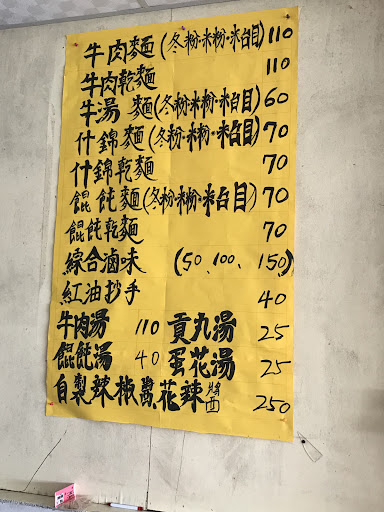 牛肉麵(冬粉·米粉·米台目)110
牛肉乾麵 110
牛湯 麵(冬粉·米粉·米台目)60
什錦麵(冬粉·米粉·米台目)70
什錦乾麵 70
餛飩麵(冬粉·米粉·米台目)70
餛飩乾麵 70
綜合滷味 (50、100、150)
紅油抄手 40
牛肉湯 110 貢丸湯 25
餛飩湯 40 蛋花湯 25
自製辣椒 花辣醬 250